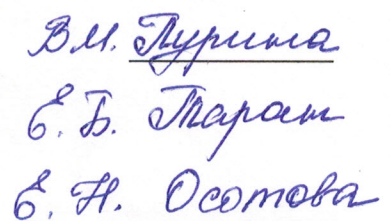 В.М. Пурина
Е. Б. Таран
Е. Н. Осотова